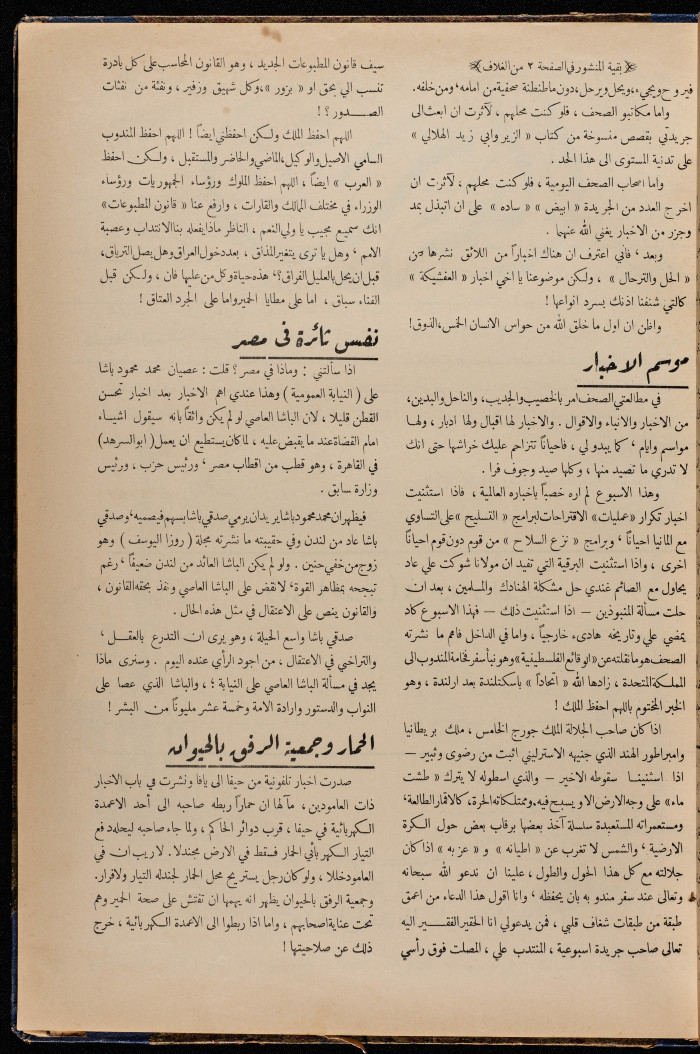 ﴿ بقية المنشور في الصفحة ٢ من الغلاف ﴾
فيروح ويجيء، ويحل ويرحل، دون ما طنطنة صحفية من امامه، ومن خلفه.
واما مكاتبو الصحف ، فلو كنت محلهم ، لآثرت ان ابعث الى
جريدتي بقصص منسوخة من كتاب « الزير وابي زيد الهلالي »
على تدنية المستوى الى هذا الحد .
واما اصحاب الصحف اليومية ، فلو كنت محلهم ، لآثرت ان
اخرج العدد من الجريدة « ابيض » « ساده » على ان اتبذل بمد
وجزر من الاخبار يغني الله عنهما .
وبعد ، فاني اعترف ان هناك اخباراً من اللائق نشرها عن
« الحل والترحال » ، ولكن موضوعنا يا اخي اخبار « العفشيكة »
كالتي شنفنا اذنك بسرد انواعها !
واظن ان اول ما خلق الله من حواس الانسان الخمس، الذوق!
موسم الاخبار
في مطالعتي الصحف امر بالخصيب والجديب، والناحل والبدين،
من الاخبار والانباء والاقوال . والاخبار لها اقبال ولها ادبار ، ولها
مواسم وايام ، كما يبدو لي ، فاحياناً تتزاحم عليك خراشها حتى انك
لا تدري ما تصيد منها ، وكلها صيد وجوف فرا .
وهذا الاسبوع لم اره خصباً باخباره العالمية ، فاذا استثنيت
اخبار تكرار « عمليات » الاقتراحات لبرامج « التسليح » على التساوي
مع المانيا احياناً ، وبرامج « نزع السلاح » من قوم دون قوم احياناً
اخرى ، واذا استثنيت البرقية التي تفيد ان مولانا شوكت علي عاد
يحاول مع الصائم غندي حل مشكلة الهنادك والمسلمين ، بعد ان
حلت مسألة المنبوذين – اذا استثنيت ذلك – فهذا الاسبوع كاد
يمضي علي وتاريخه هادىء خارجياً ، واما في الداخل فاهم ما نشرته
الصحف هو ما نقلته عن « الوقائع الفلسطينية » وهو نبأ سفر فخامة المندوب الى
المملكة المتحدة ، زادها الله « اتحاداً » باسكتلندة بعد ارلندة ، وهو
الخبر المختوم باللهم احفظ الملك !
اذا كان صاحب الجلالة الملك جورج الخامس ، ملك بريطانيا
وامبراطور الهند الذي جنيهه الاسترليني اثبت من رضوى وثبير –
اذا استثنينا سقوطه الاخير – والذي اسطوله لا يترك « طشت
ماء » على وجه الارض الا ويسبح فيه، وممتلكاته الحرة، كالاقمار الطالعة،
ومستعمراته المستعبدة سلسلة آخذ بعضها برقاب بعض حول الكرة
الارضية ، والشمس لا تغرب عن « اطيانه » و « عزبه » اذا كان
جلالته مع كل هذا الحول والطول ، علينا ان ندعو الله سبحانه
وتعالى عند سفر مندوبه بان يحفظه ، وانا اقول هذا الدعاء من اعمق
طبقة من طبقات شغاف قلبي ، فمن يدعو لي انا الحقير الفقير اليه
تعالى صاحب جريدة اسبوعية ، المنتدب علي ، المصلت فوق رأسي
سيف قانون المطبوعات الجديد ، وهو القانون المحاسب على كل بادرة
تنسب الي بحق او « بزور » ، وكل شهيق وزفير ، ونفثة من نفثات
الصـــدور ؟ !
اللهم احفظ الملك ولكن احفظني ايضاً ! اللهم احفظ المندوب
السامي الاصيل والوكيل، الماضي والحاضر والمستقبل ، ولكن احفظ
« العرب » ايضاً ، اللهم احفظ الملوك ورؤساء الجمهوريات ورؤساء
الوزراء في مختلف الممالك والقارات ، وارفع عنا « قانون المطبوعات »
انك سميع مجيب يا ولي النعم ، الناظر ماذا يفعله بنا الانتداب وعصبة
الامم ، وهل يا ترى يتغير المذاق ، بعد دخول العراق وهل يصل الترياق،
قبل ان يحل بالعليل الفراق؟، هذه حياة وكل من عليها فان ، ولكن قبل
الفناء سباق ، اما على مطايا الحمير واما على الجرد العتاق !
نفس ثائرة في مصر
اذا سألتني : وماذا في مصر ؟ قلت : عصيان محمد محمود باشا
على ( النيابة العمومية ) وهذا عندي اهم الاخبار بعد اخبار تحسن
القطن قليلا ، لان الباشا العاصي لو لم يكن واثقاً بانه سيقول اشياء
امام القضاة عند ما يقبض عليه ، لما كان يستطيع ان يعمل ( ابو السرهد )
في القاهرة ، وهو قطب من اقطاب مصر ، ورئيس حزب ، ورئيس
وزارة سابق .
فيظهر ان محمد محمود باشا يريد ان يرمي صدقي باشا بسهم فيصميه، وصدقي
باشا عاد من لندن وفي حقيبته ما نشرته مجلة ( روزا اليوسف ) وهو
زوج من خفي حنين . ولو لم يكن الباشا العائد من لندن ضعيفاً ، رغم
تبجحه بمظاهر القوة، لانقض على الباشا العاصي ونفذ بحقه القانون ،
والقانون ينص على الاعتقال في مثل هذه الحال .
صدقي باشا واسع الحيلة ، وهو يرى ان التدرع بالعقل ،
والتراخي في الاعتقال ، من اجود الرأي عنده اليوم . وسنرى ماذا
يجد في مسألة الباشا العاصي على النيابة ؛ ، والباشا الذي عصا على
النواب والدستور وارادة الامة وخمسة عشر مليوناً من البشر !
الحمار وجمعية الرفق بالحيوان
صدرت اخبار تلفونية من حيفا الى يافا ونشرت في باب الاخبار
ذات العامودين ، مآلها ان حماراً ربطه صاحبه الى أحد الاعمدة
الكهربائية في حيفا ، قرب دوائر الحاكم ، ولما جاء صاحبه ليحله دفع
التيار الكهربائي الحمار فسقط في الارض مجندلا. لا ريب ان في
العامود خللا ، ولو كان رجل يستريح محل الحمار لجندله التيار ولا فرار.
وجمعية الرفق بالحيوان يظهر انه يهمها ان تفتش على صحة الحمير وهم
تحت عناية اصحابهم ، واما اذا ربطوا الى الاعمدة الكهربائية ، خرج
ذلك عن صلاحيتها !